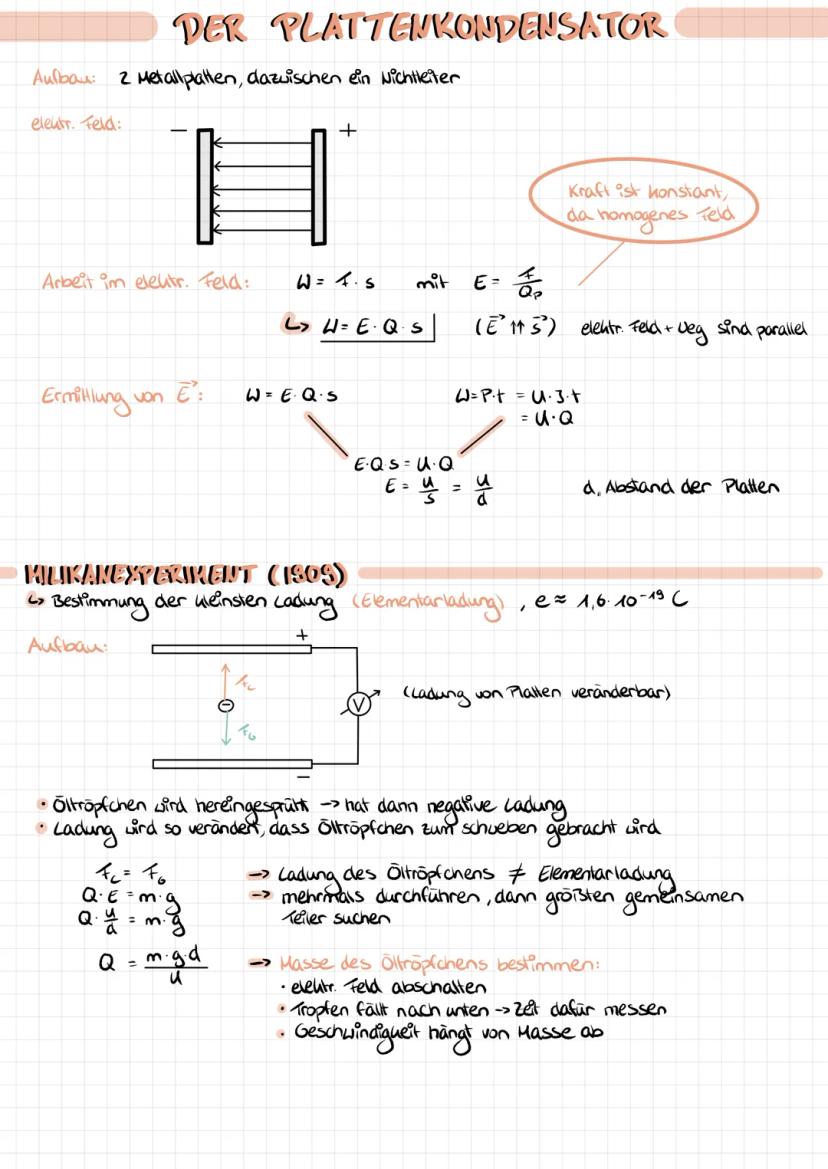 DER PLATTENKONDENSATOR
Aufbau: 2 Metallplatten, dazwischen ein Nichtleiter
elektr. Feld:
− +
Kraft ist konstant,
da homogenes Feld
Arbeit im elektr. Feld: W = F · s mit E = F/Qp
↳ W = E · Q · s (E⃗ ↑↑ s⃗) elektr. Feld + Weg sind parallel
Ermittlung von E⃗: W = E · Q · s W = P·t = U·I·t
= U·Q
E·Q·s = U·Q
E = U/s = U/d d: Abstand der Platten
MILIKANEXPERIMENT (1909)
↳ Bestimmung der kleinsten Ladung (Elementarladung), e ≈ 1,6·10⁻¹⁹ C
Aufbau:
+
FL
− V (Ladung von Platten veränderbar)
FG
−
• Öltröpfchen wird hereingesprüht → hat dann negative Ladung
• Ladung wird so verändert, dass Öltröpfchen zum schweben gebracht wird
FL = FG → Ladung des Öltröpfchens ≠ Elementarladung
Q·E = m·g → mehrmals durchführen, dann größten gemeinsamen
Q · U/d = m·g Teiler suchen
Q = m·g·d/U → Masse des Öltröpfchens bestimmen:
• elektr. Feld abschalten
• Tropfen fällt nach unten → Zeit dafür messen
• Geschwindigkeit hängt von Masse ab